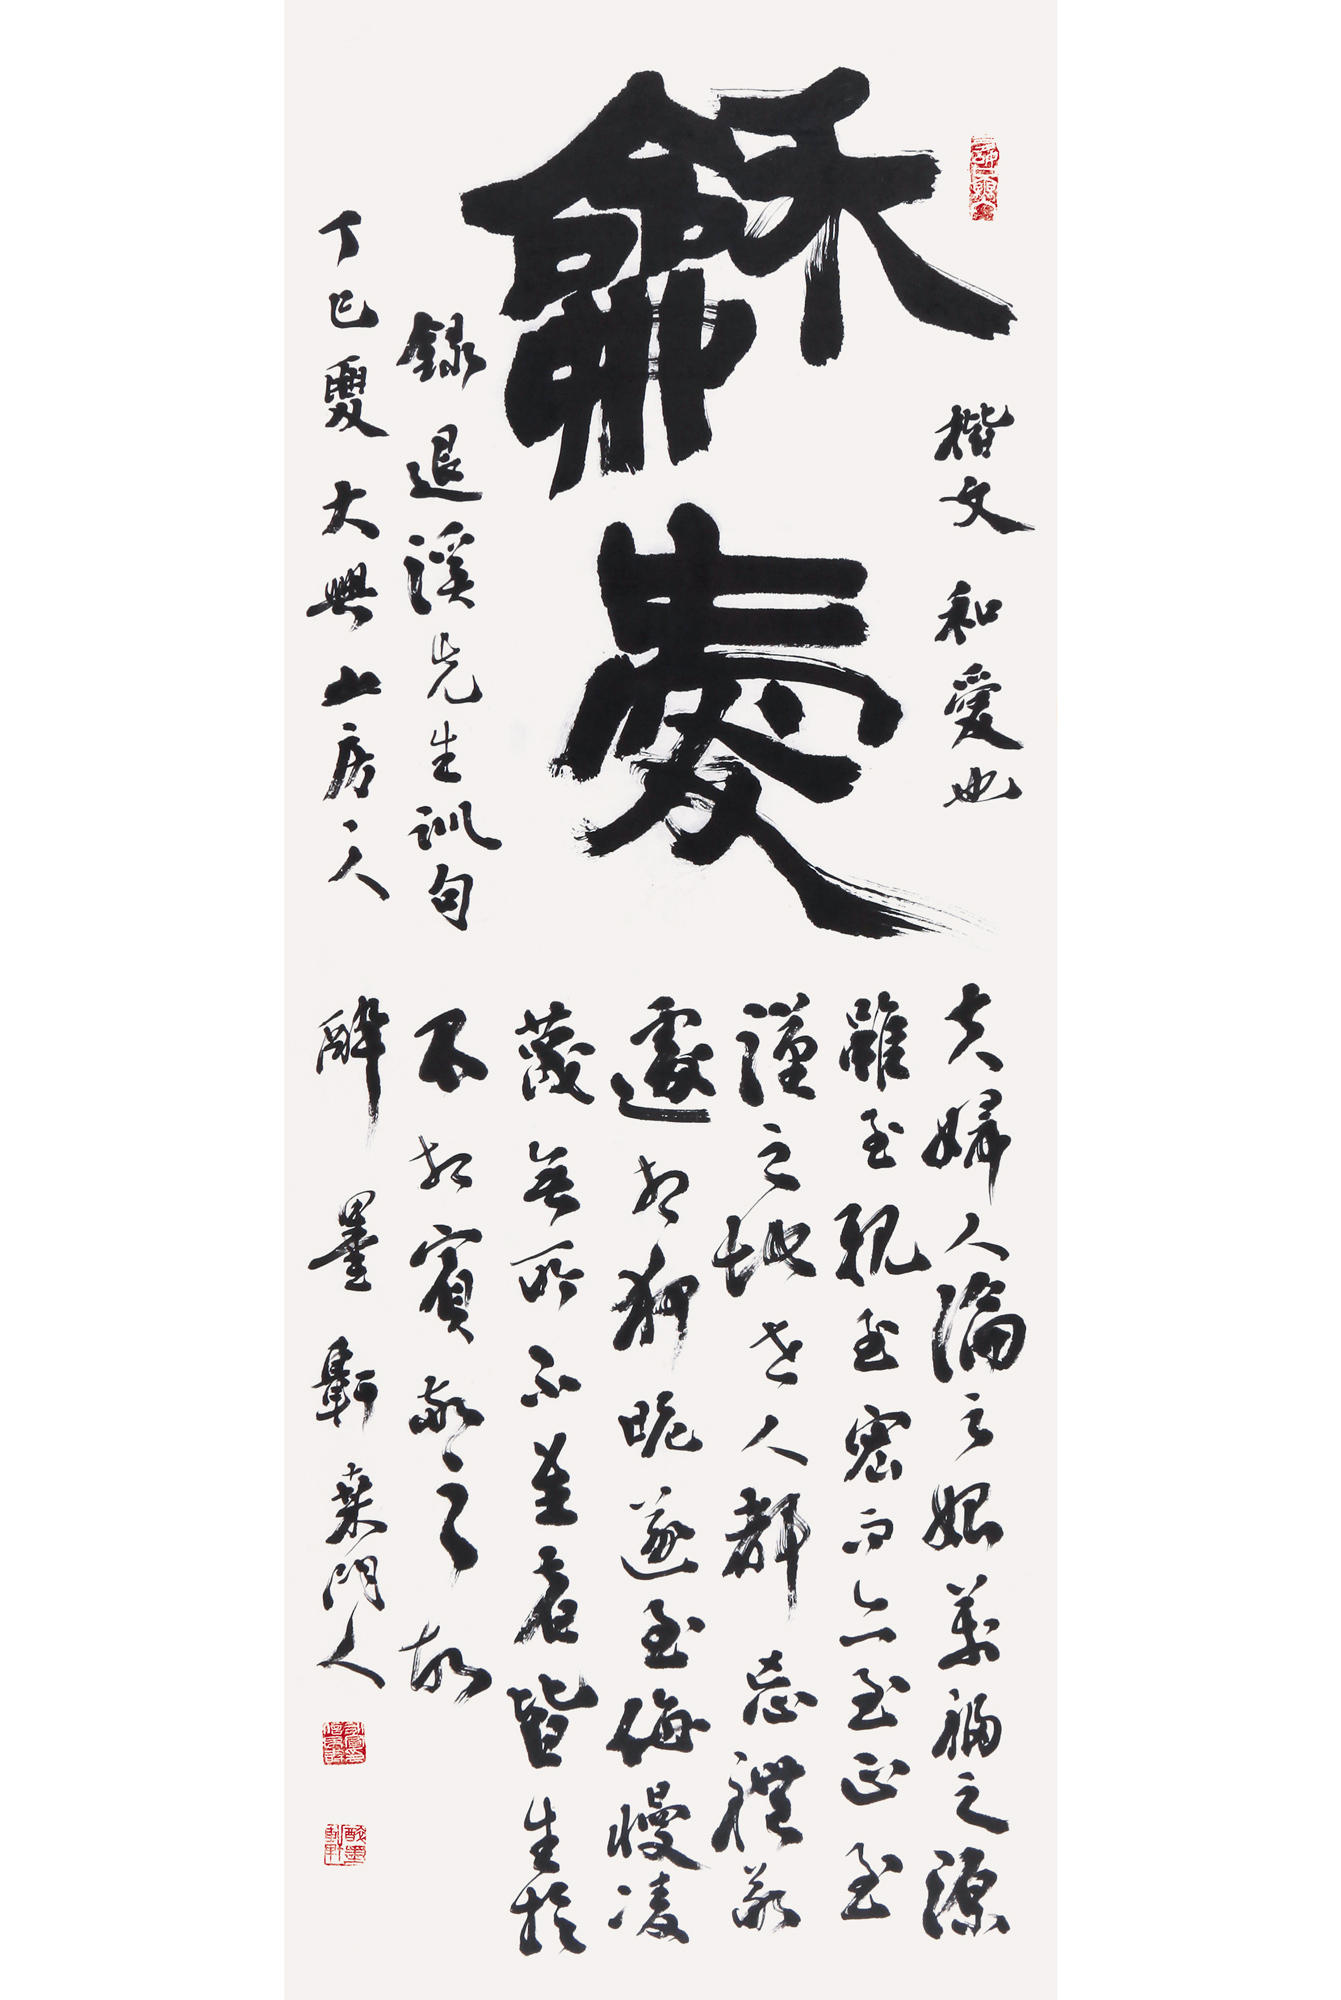 龢愛
楷文 和愛也
夫婦人倫之始萬福之源
雖至親至密而亦至正至
謹之地世人都忘禮敬
遽相狎昵遂至侮慢凌
蔑無所不至者皆生於
不相賓敬之故
錄退溪先生訓句
丁巳夏大興山房之人
醉墨軒 門人